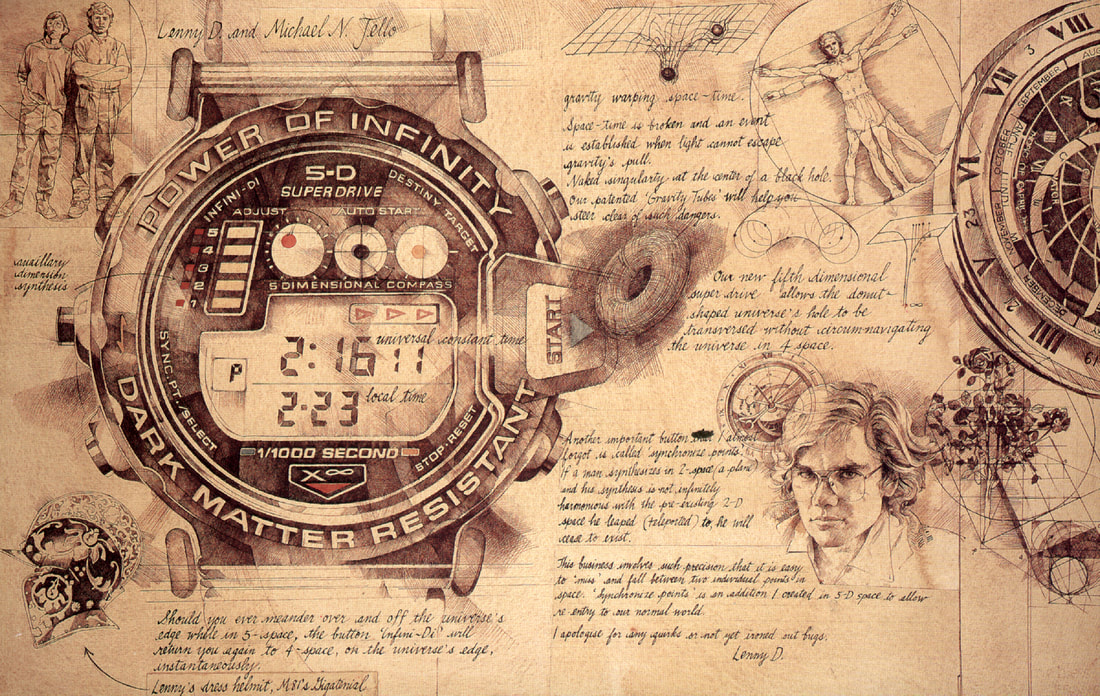 Lenny D. and Michael N. Jello
POWER OF INFINITY
5-D
SUPER DRIVE
INFINI-DI
DESTINY TARGET
ADJUST
AUTO START
5
4
3
2
1
5 DIMENSIONAL COMPASS
auxillary
dimension
synthesis
START
2:16 11
universal constant time
P
2:23
local time
SYNC. PT. / SELECT
STOP · RESET
1/1000 SECOND
X∞
DARK MATTER RESISTANT
Should you ever meander over and off the universe's
edge while in 5-space, the button 'Infini-Di' will
return you again to 4-space, on the universe's edge,
instantaneously.
Lenny's dress helmet, M81's Gigatenial
gravity warping space-time.
Space-time is broken and an event
is established when light cannot escape
gravity's pull.
Naked singularity at the center of a black hole.
Our patented 'Gravity Tubis' will help you
steer clear of such dangers.
Our new fifth dimensional
super drive allows the donut-
shaped universe's hole to be
transversed without circum-navigating
the universe in 4 space.
Another important button that I almost
forgot is called 'synchronize points'.
If a man synthesizes in 2-space, a plane
and his synthesis is not infinitely
harmonious with the pre-existing 2-D
space he leaped (teleported) to, he will
cease to exist.
This business involves such precision that it is easy
to 'miss' and fall between two individual points in
space. 'Synchronize points' is an addition I created in 5-D space to allow
re-entry to our normal world.
I apologise for any quirks or not yet ironed out bugs.
Lenny D.
VIII
VII
VI
V
IIII
3
23
SEPTEMBER
DECEMBER